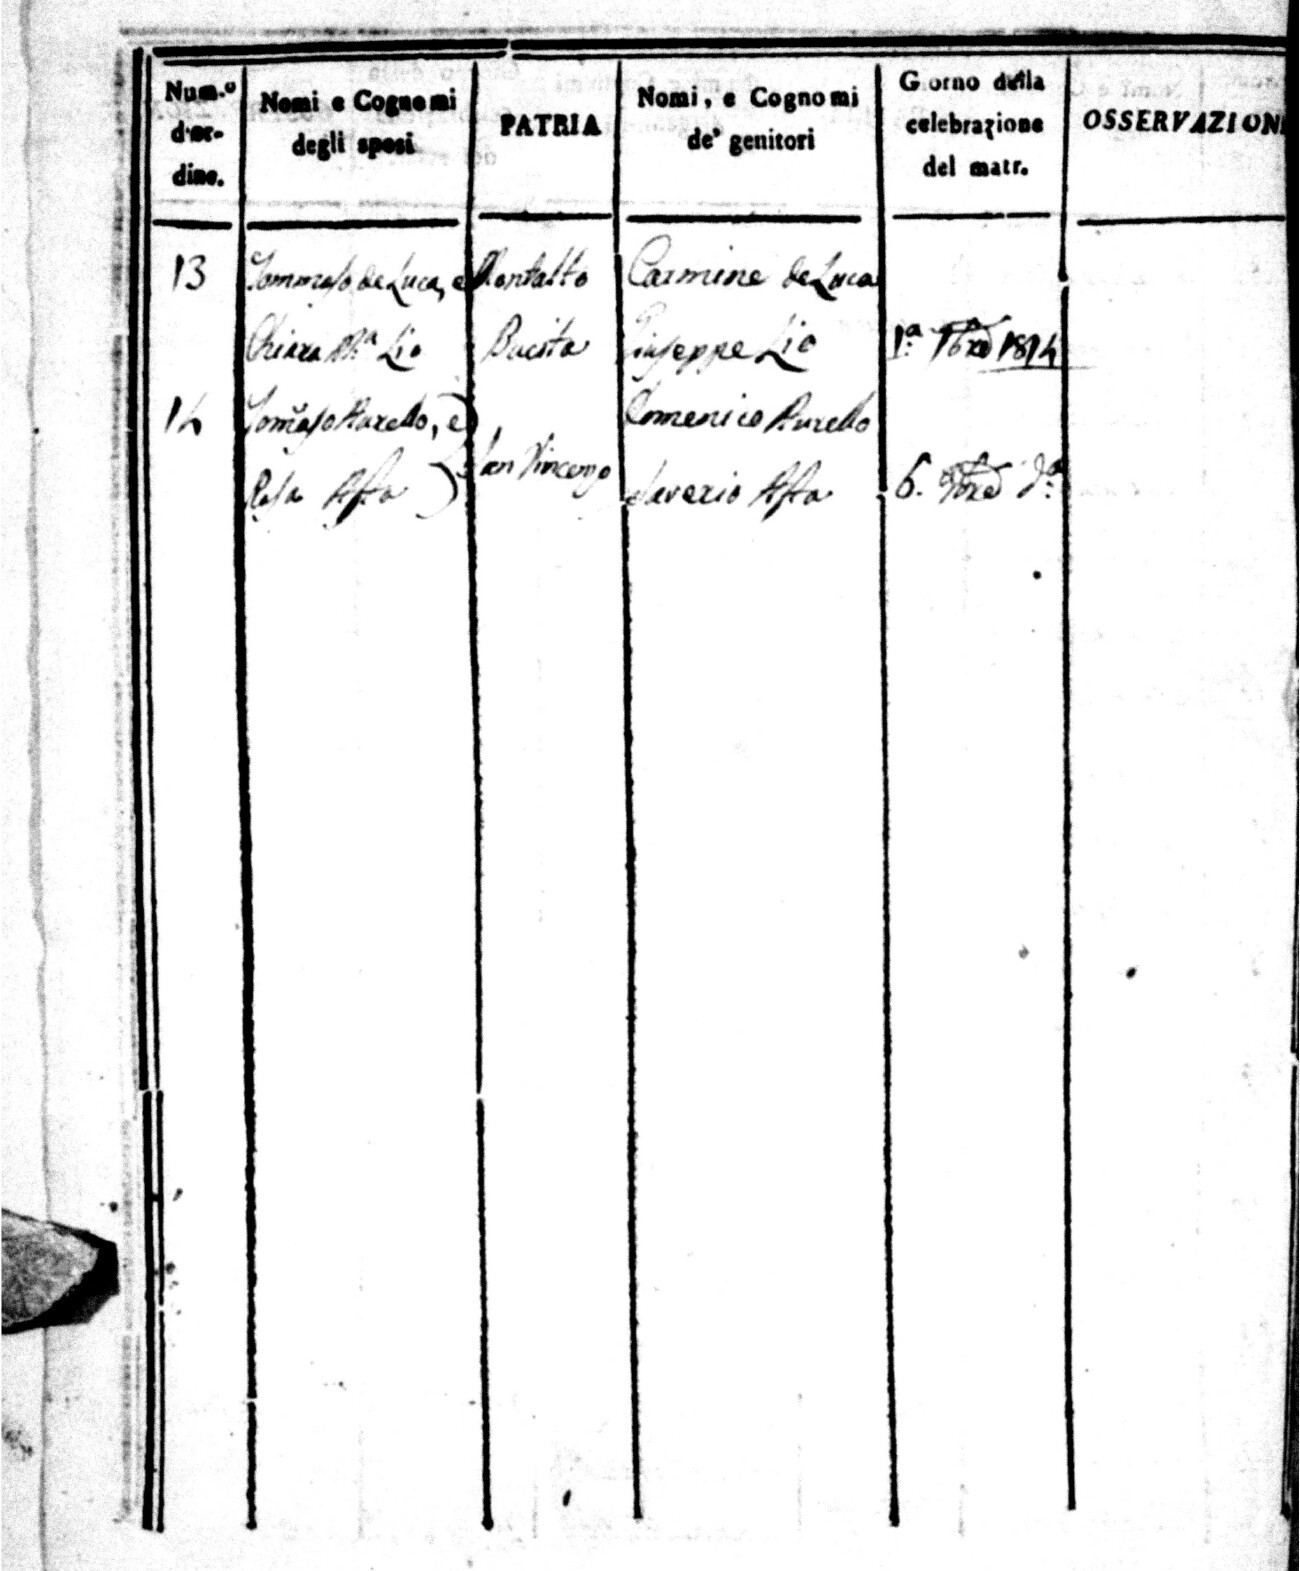 Num.o d'or- dine.
Nomi e Cognomi degli sposi
PATRIA
Nomi, e Cognomi de' genitori
Giorno della celebrazione del matr.
OSSERVAZIONI
13 Tommaso de Luca, e Montalto Carmine de Luca
Chiara Ma Lio Bucita Giuseppe Lio 1.a 1814
14 Tom̃aso Aurello, e Domenico Aurello
San Vincenzo
Rosa Asta Saverio Asta 6. 9bre do